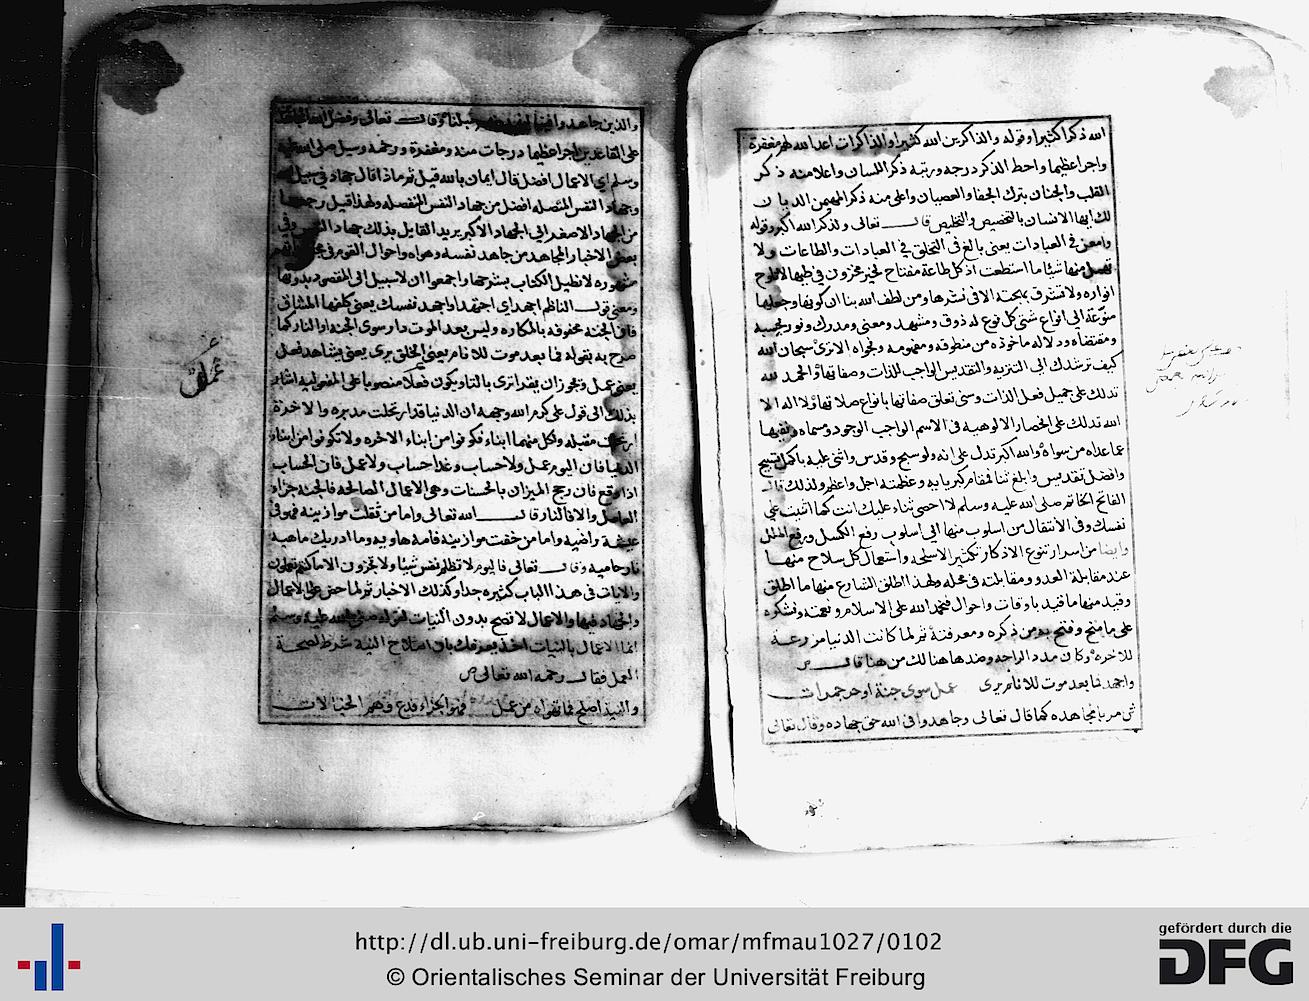 الله ذكرا كثيرا وقوله والذاكرين الله كثيرا والذاكرات اعد الله لهم مغفرة
واجرا عظيما واحط الذكر درجه ورتبة ذكر اللسان واعلا منه ذكر
القلب والجنان بترك الجفا والعصيان واعلى منه ذكر المهيمن الديان
لك ايها الانسان بالتخصيص والتخليص قال تعالى ولذكر الله اكبر وقوله
وامعن في العبادات يعني بالغ في التخلق في العبادات والطاعات ولا
منها شيئا ما استطعت اذ كل طاعة مفتاح لخير مخزون في طيها لا تلوح
انواره ولا تشرق بهجته الا في نشرها ومن لطف الله بنا ان كونها وجعلها
منوعة الى انواع شتى كل نوع له ذوق ومشهد ومعنى ومدرك ونور بحسبه
ومقتضاه ودلاله ماخوذه من منطوقه ومفهومه وفحواه الا ترى سبحان الله
كيف ترشدك الى التنزيه والتقديس الواجب للذات وصفاتها والحمد لله
تدلك على جميل فعل الذات وسنى تعلق صفاتها بانواع صلاتها ولا اله الا
الله تدلك على انحصار الالوهية في الاسم الواجب الوجود ومسماه ونفيها
عما عداه من سواه والله اكبر تدل على انه ولو سبح وقدس واثنى عليه باكمل تسبيح
وافضل تقديس وابلغ ثنا فمقام كبريايه وعظمته اجل واعظم ولذلك قال
الفاتح الخاتم صلى الله عليه وسلم لا احصي ثناء عليك انت كما اثنيت على
نفسك وفي الانتقال من اسلوب منها الى اسلوب رفع الكسل ورفع الملل
وايضا من اسرار تنوع الاذكار تكثير الاسلحه واستعمال كل سلاح منها
عند مقابلة العدو ومقابلته في محله ولهذا اطلق الشارع منها ما اطلق
وقيد منها ما قيد باوقات واحوال فنحمد الله على الاسلام ونعمته ونشكره
على ما منح وفتح به من ذكره ومعرفته ثم لما كانت الدنيا مزرعة
للاخره وكان مدد الراحه وضدها هنالك من هنا قال
واجهد فما بعد موت للانام يرى عمل سوى جنة او حر جمرات
ش مر بامجاهده كما قال تعالى وجاهدوا في الله حق جهاده وقال تعالى
والذين جاهدوا فينا لنهدينهم سبلنا وقال تعالى وفضل الله المجاهدين
على القاعدين اجرا عظيما درجات منه ومغفرة ورحمة وسيل صلى الله عليه
وسلم اي الاعمال افضل قال ايمان بالله قيل ثم ماذا قال جهاد في سبيل الله
وجهاد النفس المتصله افضل من جهاد النفس المنفصله ولهذا قيل رجعنا
من الجهاد الاصغر الى الجهاد الاكبر يريد القايل بذلك جهاد النفس وفي
بعض الاخبار المجاهد من جاهد نفسه وهواه واحوال القوم في
مشهوره لا نطيل الكتاب بشرحها واجمعوا ان لا سبيل الى المقصد بدونها
ومعنى قول الناظم اجهد اي اجتهد واجهد نفسك يعني كلفها المشاق
فان الجنة محفوفه بالمكاره وليس بعد الموت دار سوى الجنة او النار كما
صرح به بقوله فما بعد موت للانام يعني الخلق يرى يعني يشاهد فعل
يعني عمل ويجوز ان يقدر اترى بالتا ويكون فعلا منصوبا على المفعولية اشار
بذلك الى قول علي كرم الله وجهه ان الدنيا قد ارتحلت مدبره والاخرة
ارتحلت مقبله ولكل منهما ابناء فكونوا من ابناء الاخره ولا تكونوا من ابناء
الدنيا فان اليوم عمل ولا حساب وغدا حساب ولا عمل فان الحساب
اذا وقع فان رجح الميزان بالحسنات وهي الاعمال الصالحه فالجنة جزاء
العامل والا فالنار قال الله تعالى واما من ثقلت موازينه فهو في
عيشة راضيه واما من خفت موازينه فامه هاويه وما ادريك ماهيه
نار حاميه وقال تعالى فاليوم لا تظلم نفس شيئا ولا تجزون الا ما كنتم تعملون
والايات في هذا الباب كثيره جدا وكذلك الاخبار ثم لما حض على الاعمال
والجهاد فيها والاعمال لا تصح بدون النيات لقوله صلى الله عليه وسلم
انما الاعمال بالنيات اخذ يعرفك بان اصلاح النية شرط لصحة
العمل فقال رحمه الله تعالى
والنية اصلح فما تنواه من عمل فهو الجزاء فدع وهم الخيالات
عملا
http://dl.ub.uni-freiburg.de/omar/mfmau1027/0102
© Orientalisches Seminar der Universität Freiburg
gefördert durch die
DFG